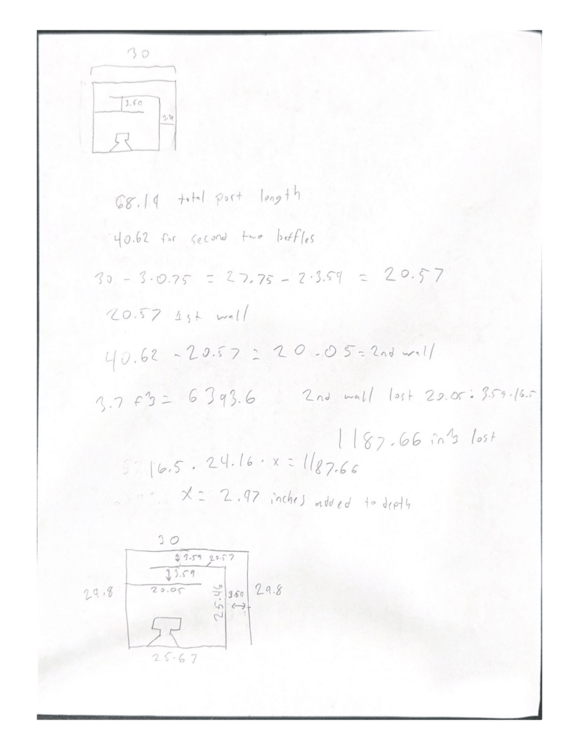 30
3.59
3.59
68.19 total port length
40.62 for second two baffles
30 - 3·0.75 = 27.75 - 2·3.59 = 20.57
20.57 1st wall
40.62 - 20.57 = 20.05 = 2nd wall
3.7 f^3 = 6393.6 2nd wall lost 20.05·3.59·16.5
1187.66 in^3 lost
16.5 · 24.16 · x = 1187.66
x = 2.97 inches added to depth
30
3.59 20.57
3.59
29.8 20.05 25.46 3.59 29.8
25.67